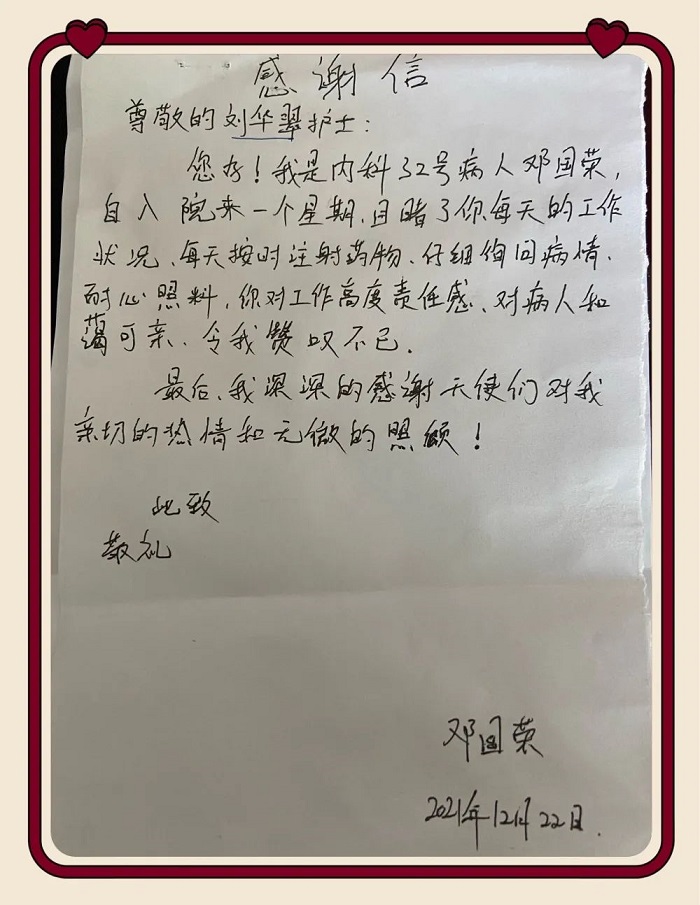 感谢信
尊敬的刘华翠护士:
您好!我是内科32号病人邓国荣,
自入院来一个星期,目睹了你每天的工作
状况、每天按时注射药物、仔细询问病情、
耐心照料,你对工作高度责任感、对病人和
蔼可亲、令我赞叹不已.
最后、我深深的感谢天使们对我
亲切的热情和无微的照顾!
此致
敬礼
邓国荣
2021年12月22日.